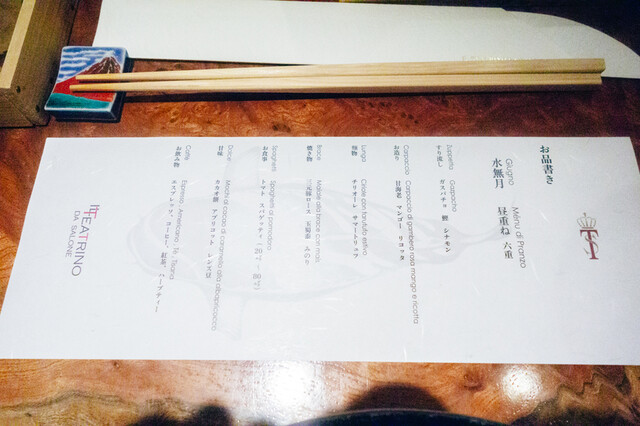 TS
お品書き
Giugno Menu di Pranzo
水無月 昼重ね 六重
Zuppetta Gazpacho
すり流し ガスパチョ 鰹 シナモン
Carpaccio Carpaccio di gambero rosa mango e ricotta
お造り 甘海老 マンゴー リコッタ
Lunga con tartufo estivo
チリオーレ サマートリュフ
Brace Maiale alla brace con mais
焼き物 三元豚ロース 玉蜀黍 みのり
Spaghetti Spaghetti al pomodoro
お食事 トマト スパゲッティ
Dolce Mochi al cacao di caramello
甘味 カカオ餅 アプリコット レンズ豆
Caffè Espresso, Americano, Tè, Tisana
お飲み物 エスプレッソ、コーヒー、紅茶、ハーブティー
IL TEATRINO
DA SALONE